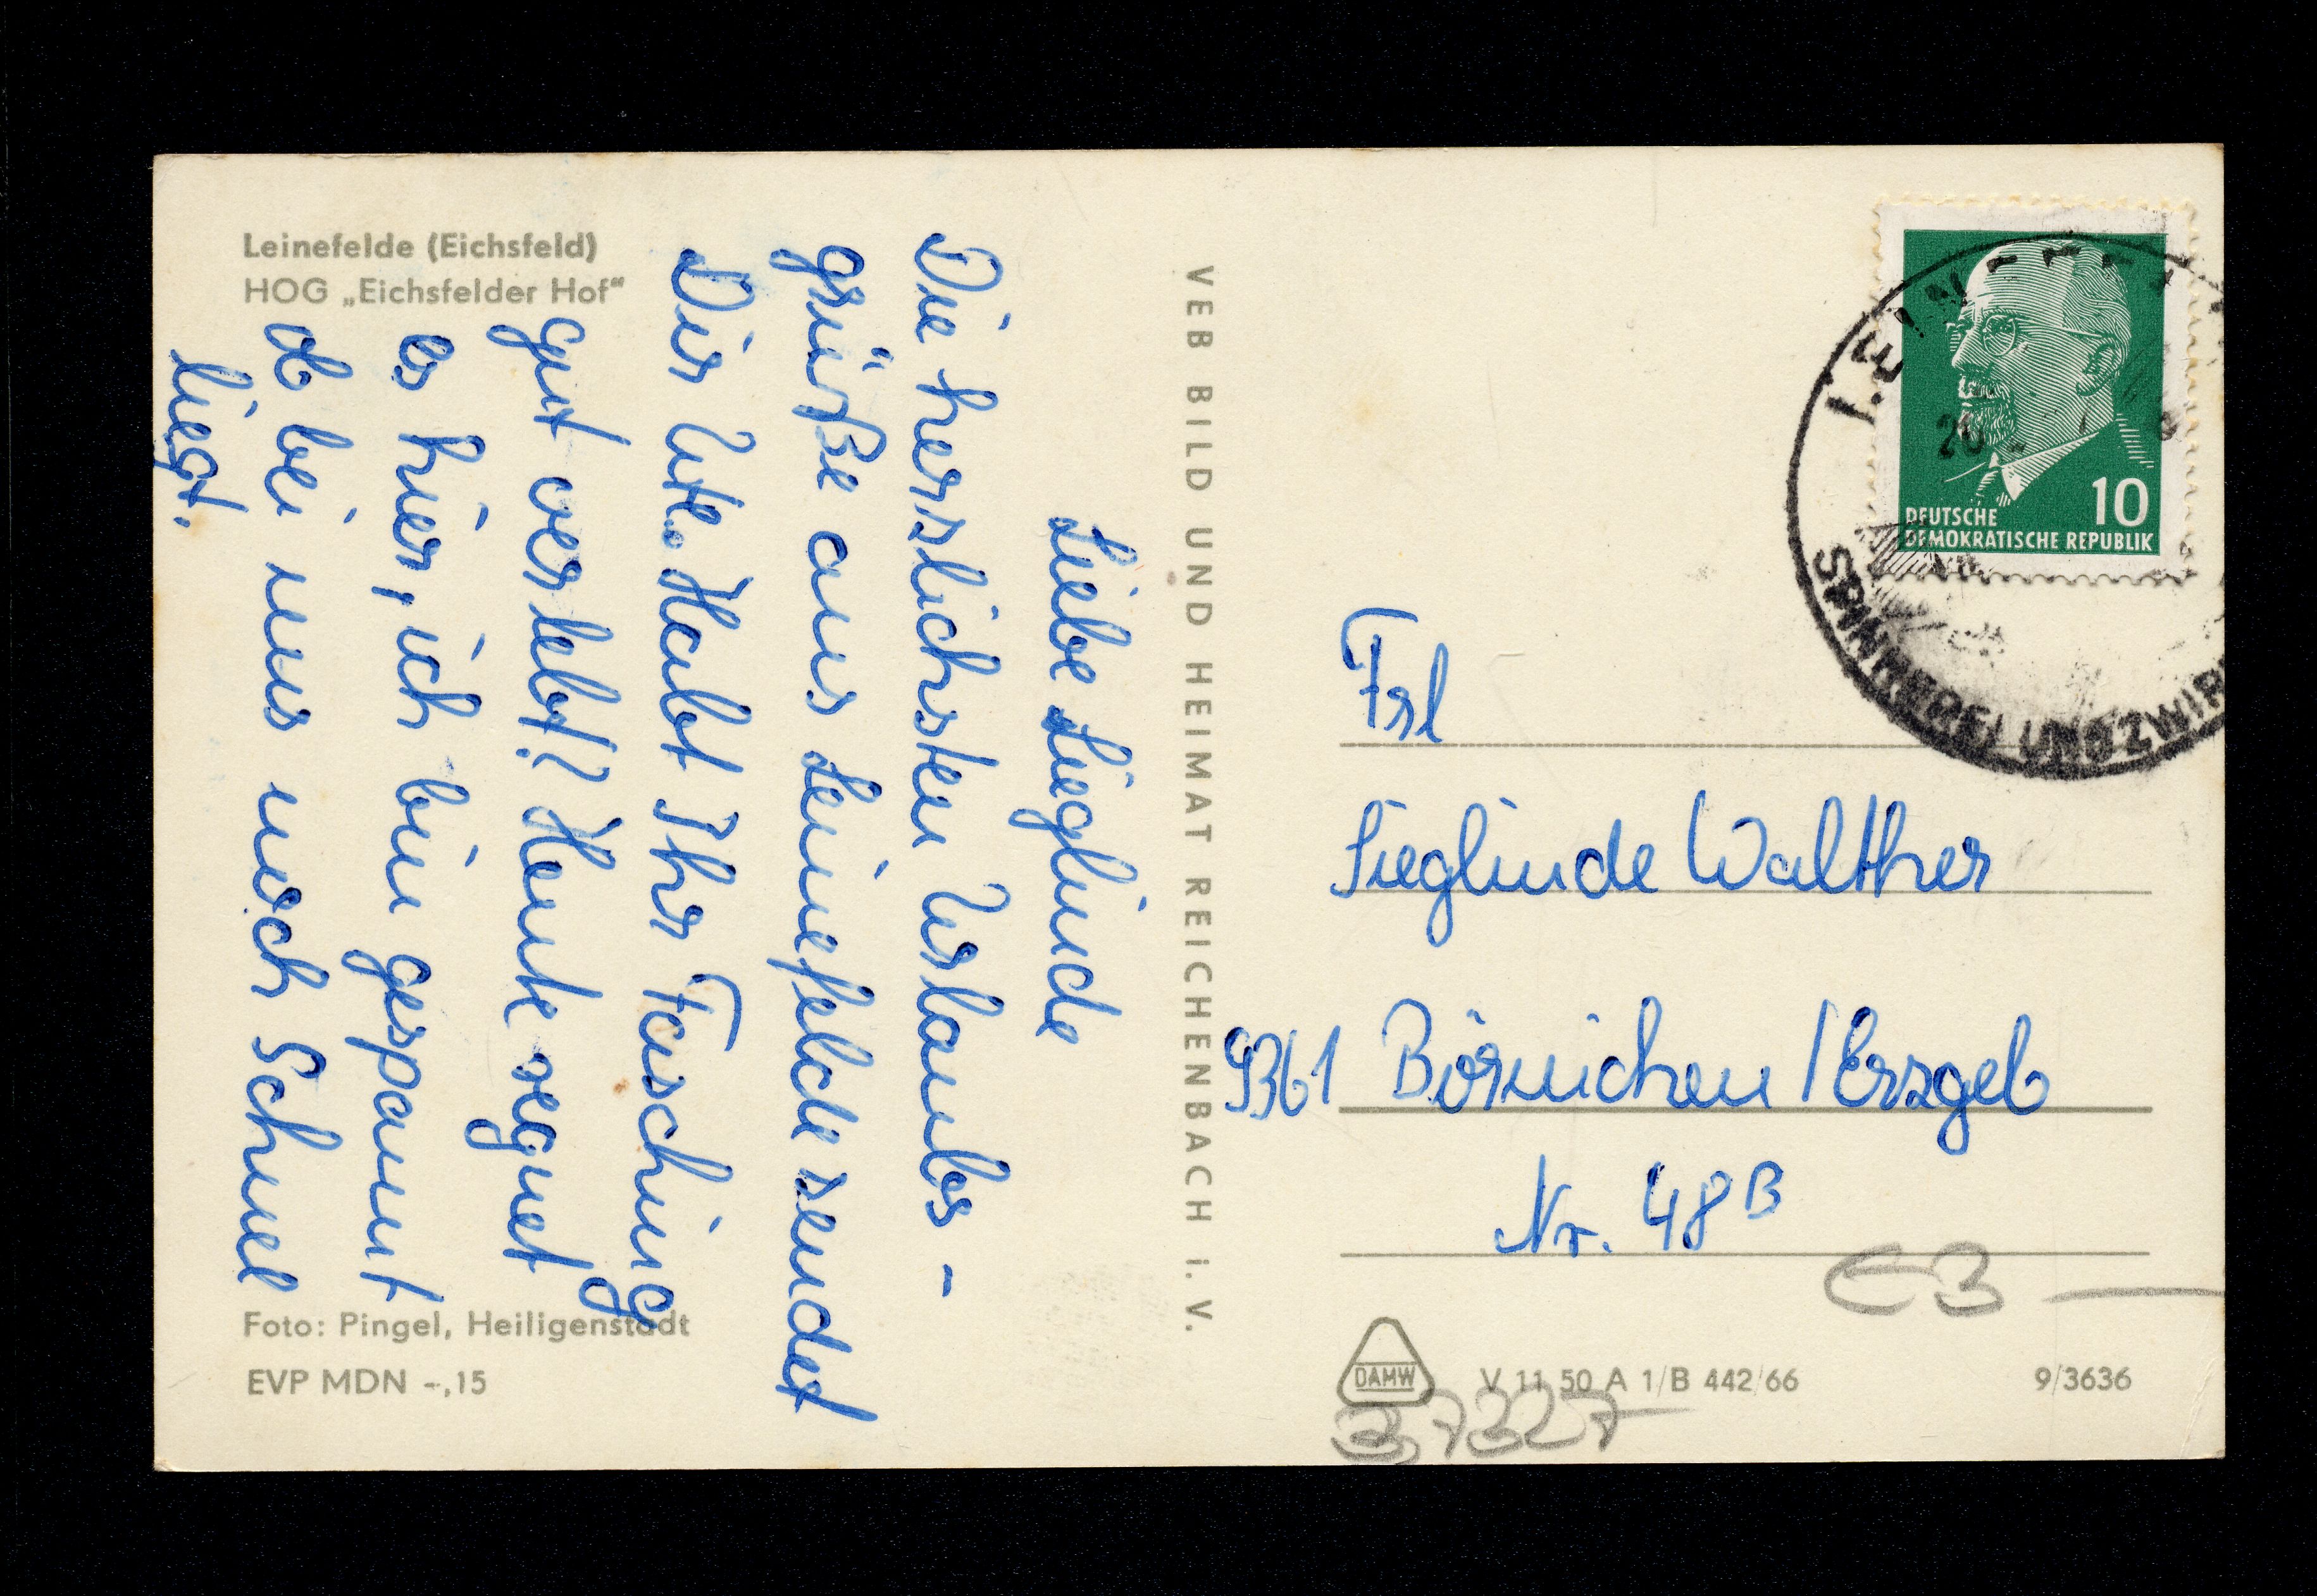 Leinefelde (Eichsfeld)
HOG „Eichsfelder Hof“
Liebe Sieglinde
Die herzlichsten Urlaubs-
grüße aus Leinefelde sendet
Dir Ute. Habt Ihr Fasching
gut verlebt? Heute regnet
es hier, ich bin gespannt
ob bei uns noch Schnee
liegt.
Foto: Pingel, Heiligenstadt
EVP MDN –,15
VEB BILD UND HEIMAT REICHENBACH I. V.
10
DEUTSCHE
DEMOKRATISCHE REPUBLIK
SPINNEREI UND ZWIR
Frl
Sieglinde Walther
9361 Börnichen / Erzgeb
Nr. 48B
DAMW
V 11 50 A 1/B 442/66
9/3636
37327